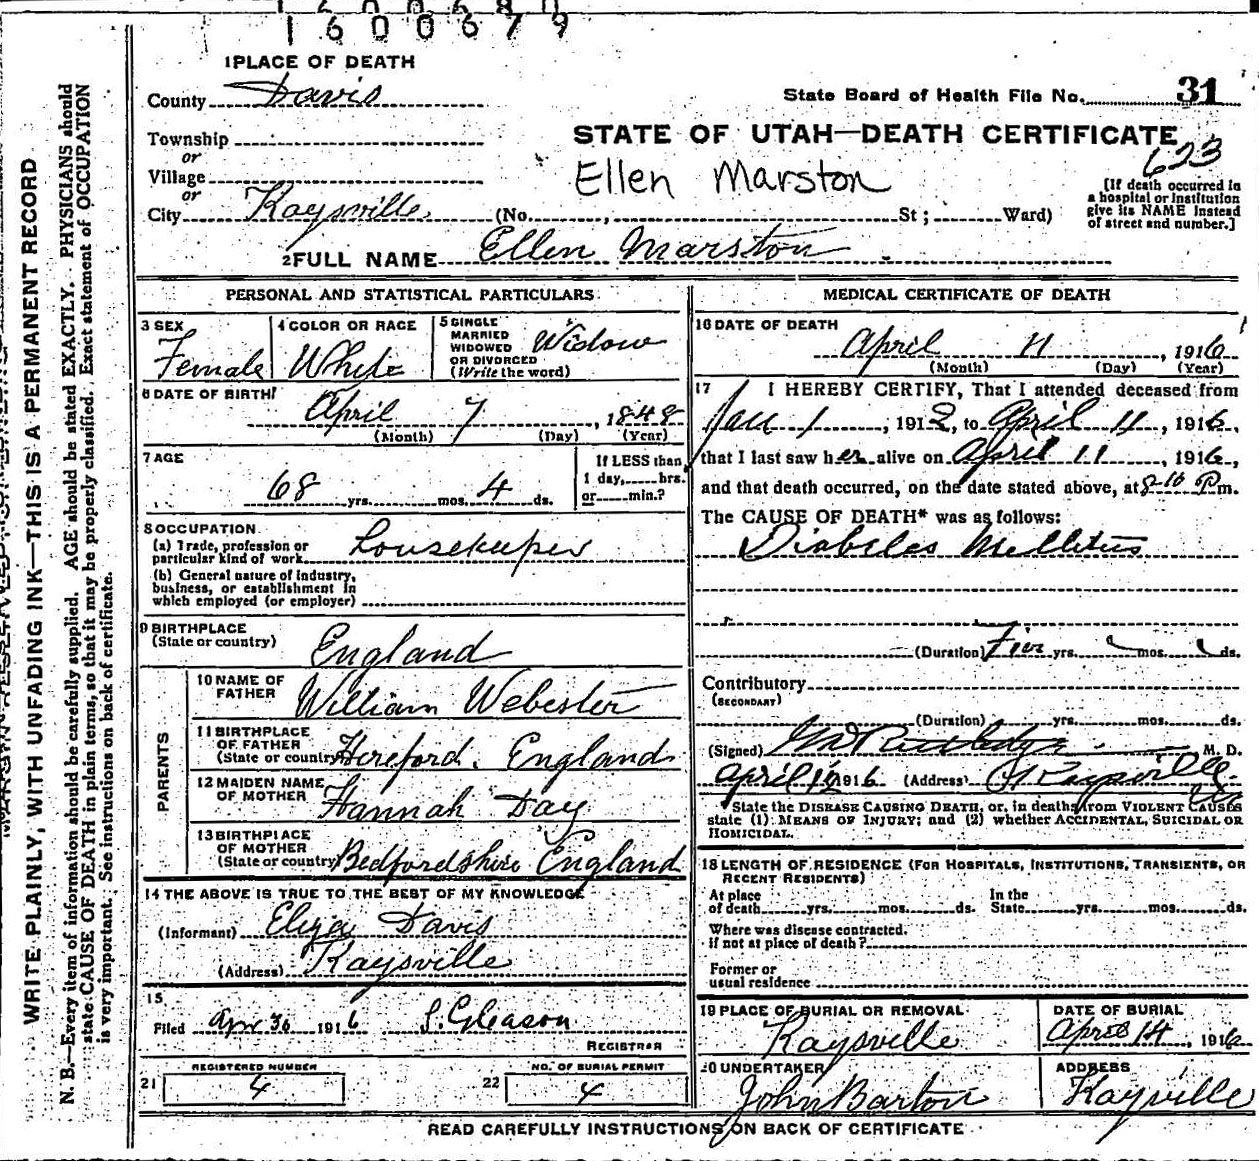 1600679
1 PLACE OF DEATH
County Davis
State Board of Health File No. 31
Township
or
Village
or
City Kaysville (No. , St; Ward)
STATE OF UTAH—DEATH CERTIFICATE
623
Ellen Marston
[If death occurred in
a hospital or institution
give its NAME instead
of street and number.]
2 FULL NAME Ellen Marston
PERSONAL AND STATISTICAL PARTICULARS
3 SEX
Female
4 COLOR OR RACE
White
5 SINGLE
MARRIED
WIDOWED
OR DIVORCED
(Write the word)
Widow
6 DATE OF BIRTH
April 7, 1848
(Month) (Day) (Year)
7 AGE
68 yrs. mos. 4 ds.
If LESS than
1 day, hrs.
or min.?
8 OCCUPATION
(a) Trade, profession or
particular kind of work Housekeeper
(b) General nature of industry,
business, or establishment in
which employed (or employer)
9 BIRTHPLACE
(State or country) England
PARENTS
10 NAME OF
FATHER William Webester
11 BIRTHPLACE
OF FATHER
(State or country) Hereford, England
12 MAIDEN NAME
OF MOTHER Hannah Day
13 BIRTHPLACE
OF MOTHER
(State or country) Bedfordshire England
14 THE ABOVE IS TRUE TO THE BEST OF MY KNOWLEDGE
(Informant) Eliza Davis
(Address) Kaysville
15
Filed Apr 30 1916 S. Gleason
REGISTRAR
REGISTERED NUMBER
21 4
NO. OF BURIAL PERMIT
22 4
MEDICAL CERTIFICATE OF DEATH
16 DATE OF DEATH
April 11, 1916
(Month) (Day) (Year)
17 I HEREBY CERTIFY, That I attended deceased from
Jan 1, 1912, to April 11, 1916,
that I last saw her alive on April 11, 1916,
and that death occurred, on the date stated above, at 8-10 P m.
The CAUSE OF DEATH* was as follows:
Diabetes Mellitus
(Duration) Five yrs. mos. ds.
Contributory
(SECONDARY)
(Duration) yrs. mos. ds.
(Signed) Rutledge M. D.
April 1916 (Address) Kaysville
State the DISEASE CAUSING DEATH, or, in deaths from VIOLENT CAUSES
state (1) MEANS OF INJURY; and (2) whether ACCIDENTAL, SUICIDAL OR
HOMICIDAL.
18 LENGTH OF RESIDENCE (FOR HOSPITALS, INSTITUTIONS, TRANSIENTS, OR
RECENT RESIDENTS)
At place
of death yrs. mos. ds.
In the
State yrs. mos. ds.
Where was disease contracted,
if not at place of death?
Former or
usual residence
19 PLACE OF BURIAL OR REMOVAL
Kaysville
DATE OF BURIAL
April 14, 1916
20 UNDERTAKER
John Barton
ADDRESS
Kayville
READ CAREFULLY INSTRUCTIONS ON BACK OF CERTIFICATE
WRITE PLAINLY, WITH UNFADING INK—THIS IS A PERMANENT RECORD
N. B.—Every item of information should be carefully supplied. AGE should be stated EXACTLY. PHYSICIANS should
state CAUSE OF DEATH in plain terms, so that it may be properly classified. Exact statement of OCCUPATION
is very important. See instructions on back of certificate.